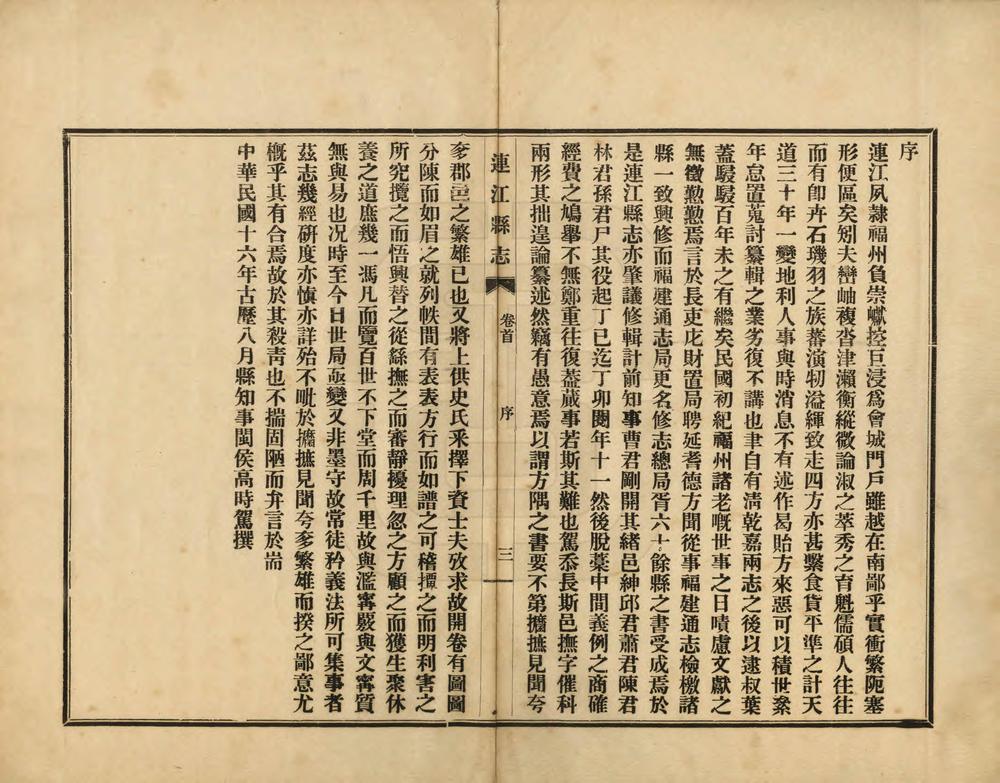 序
連江夙隸福州負崇巘控巨浸爲會城門戶雖越在南鄙乎實衝繁阨塞
形便區矣矧夫巒岫複沓津瀨衡縱微論淑之萃秀之育魁儒碩人往往
而有卽卉石璣羽之族蕃演牣溢緷致走四方亦甚繫食貨平準之計天
道三十年一變地利人事與時消息不有述作曷貽方來惡可以積世絫
年怠置蒐討纂輯之業劣復不講也聿自有淸乾嘉兩志之後以逮叔葉
蓋駸駸百年未之有繼矣民國初紀福州諸老嘅世事之日嘖慮文獻之
無徵懃懃焉言於長吏庀財置局聘延耆德方聞從事福建通志檢檄諸
縣一致興修而福建通志局更名修志總局胥六十餘縣之書受成焉於
是連江縣志亦肇議修輯計前知事曹君剛開其緒邑紳邱君蕭君陳君
林君孫君尸其役起丁巳迄丁卯閱年十一然後脫稾中間義例之商確
經費之鳩舉不無鄭重往復葢蕆事若斯其難也駕忝長斯邑撫字催科
兩形其拙遑論纂述然竊有愚意焉以謂方隅之書要不第攟摭見聞夸
連江縣志 卷首 序 三
奓郡邑之繁雄已也又將上供史氏釆擇下資士夫攷求故開卷有圖圖
分陳而如眉之就列帙間有表表方行而如譜之可稽擥之而明利害之
所究攬之而悟興替之從繇撫之而審靜擾理忽之方顧之而獲生聚休
養之道庶幾一馮凡而覽百世不下堂而周千里故與濫寗嚴與文寗質
無與易也况時至今日世局亟變又非墨守故常徒矜義法所可集事者
茲志幾經硏度亦愼亦詳殆不呲於攟摭見聞夸奓繁雄而揆之鄙意尤
槪乎其有合焉故於其殺靑也不揣固陋而弁言於耑
中華民國十六年古歷八月縣知事閩侯高時駕撰